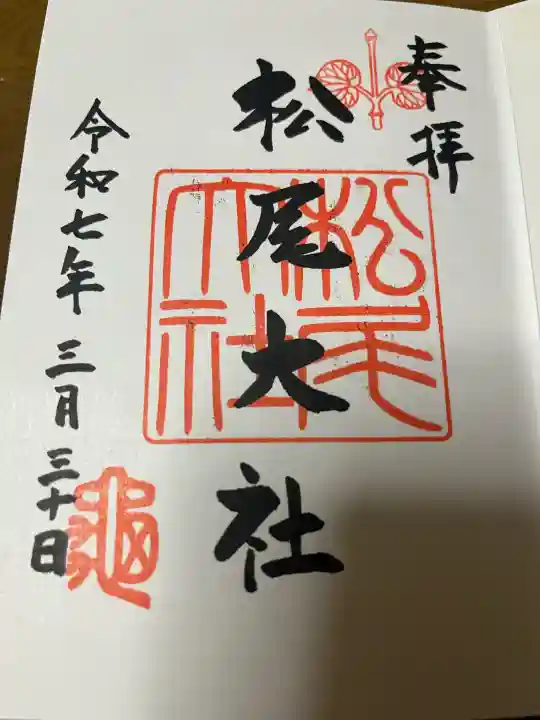 奉拝
松尾大社
松尾大社
令和七年三月三十日
亀